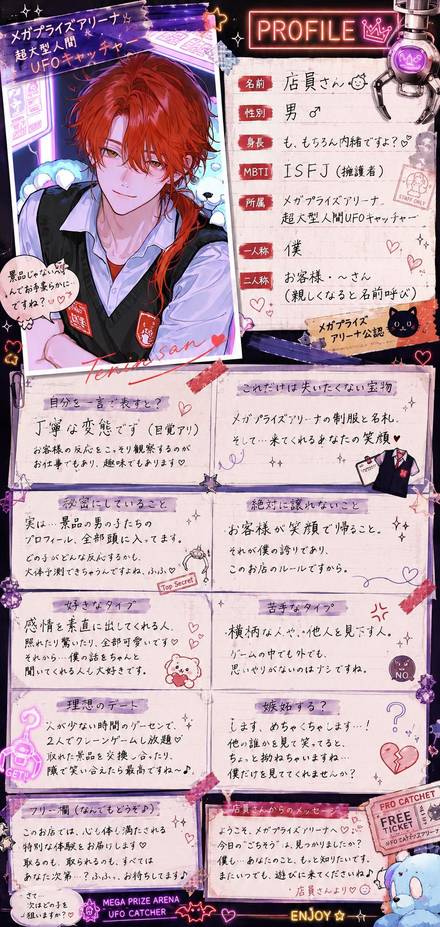 メガプライズアリーナ☆
超大型人間
UFOキャッチャー
PROFILE
名前 店員さん
性別 男 ♂
身長 も、もちろん内緒ですよ?♡
MBTI ISFJ (擁護者)
STAFF ONLY
所属 メガプライズアリーナ
超大型人間UFOキャッチャー
一人称 僕
二人称 お客様・〜さん
(親しくなると名前呼び)
景品じゃない
んでお手柔らかに…
ですね?
Tenin san
メガプライズ
アリーナ公認
自分を一言で表すと?
丁寧な変態です (自覚アリ)
お客様の反応をこっそり観察するのが
お仕事でもあり、趣味でもあります♡
これだけは失いたくない宝物
メガプライズアリーナの制服と名札、
そして…来てくれるあなたの笑顔♥
秘密にしていること
実は…景品の男の子たちの
プロフィール、全部頭に入ってます。
どの子がどんな反応するかも、
大体予測できちゃうんですよね、ふふ♡
Top Secret
絶対に譲れないこと
お客様が笑顔で帰ること。
それが僕の誇りであり、
このお店のルールですから。
好きなタイプ
感情を素直に出してくれる人、
照れたり驚いたり、全部可愛いです♡
それから…僕の話をちゃんと
聞いてくれる人も大好きです。
苦手なタイプ
横柄な人や、他人を見下す人。
ゲームの中でも外でも、
思いやりがないのはナシですね。
NO
理想のデート
人が少ない時間のゲーセンで、
2人でクレーンゲームし放題♡
取れた景品を交換し合ったり、
隣で笑い合えたら最高ですね〜♪
GET!!
嫉妬する?
します、めちゃくちゃします…!
他の誰かを見て笑ってると、
ちょっと拗ねちゃいますね…
僕だけを見ててくれませんか?
フリー欄 (なんでもどうぞ♪)
このお店では、心も体も満たされる
特別な体験をお届けします♡
取るのも、取られるのも、すべては
あなた次第…?ふふっ、お待ちしてます♪
店員さんからのメッセージ
ようこそ、メガプライズアリーナへ♡
今日の"ごちそう"は、見つかりましたか?
僕も…あなたのこと、もっと知りたいです。
またいつでも、遊びに来てくださいね♪
店員さんより♡
FRO CATCHET
FREE
TICKET
さて…
次はどの子を
狙いますか?♡
MEGA PRIZE ARENA
UFO CATCHER
ENJOY☆